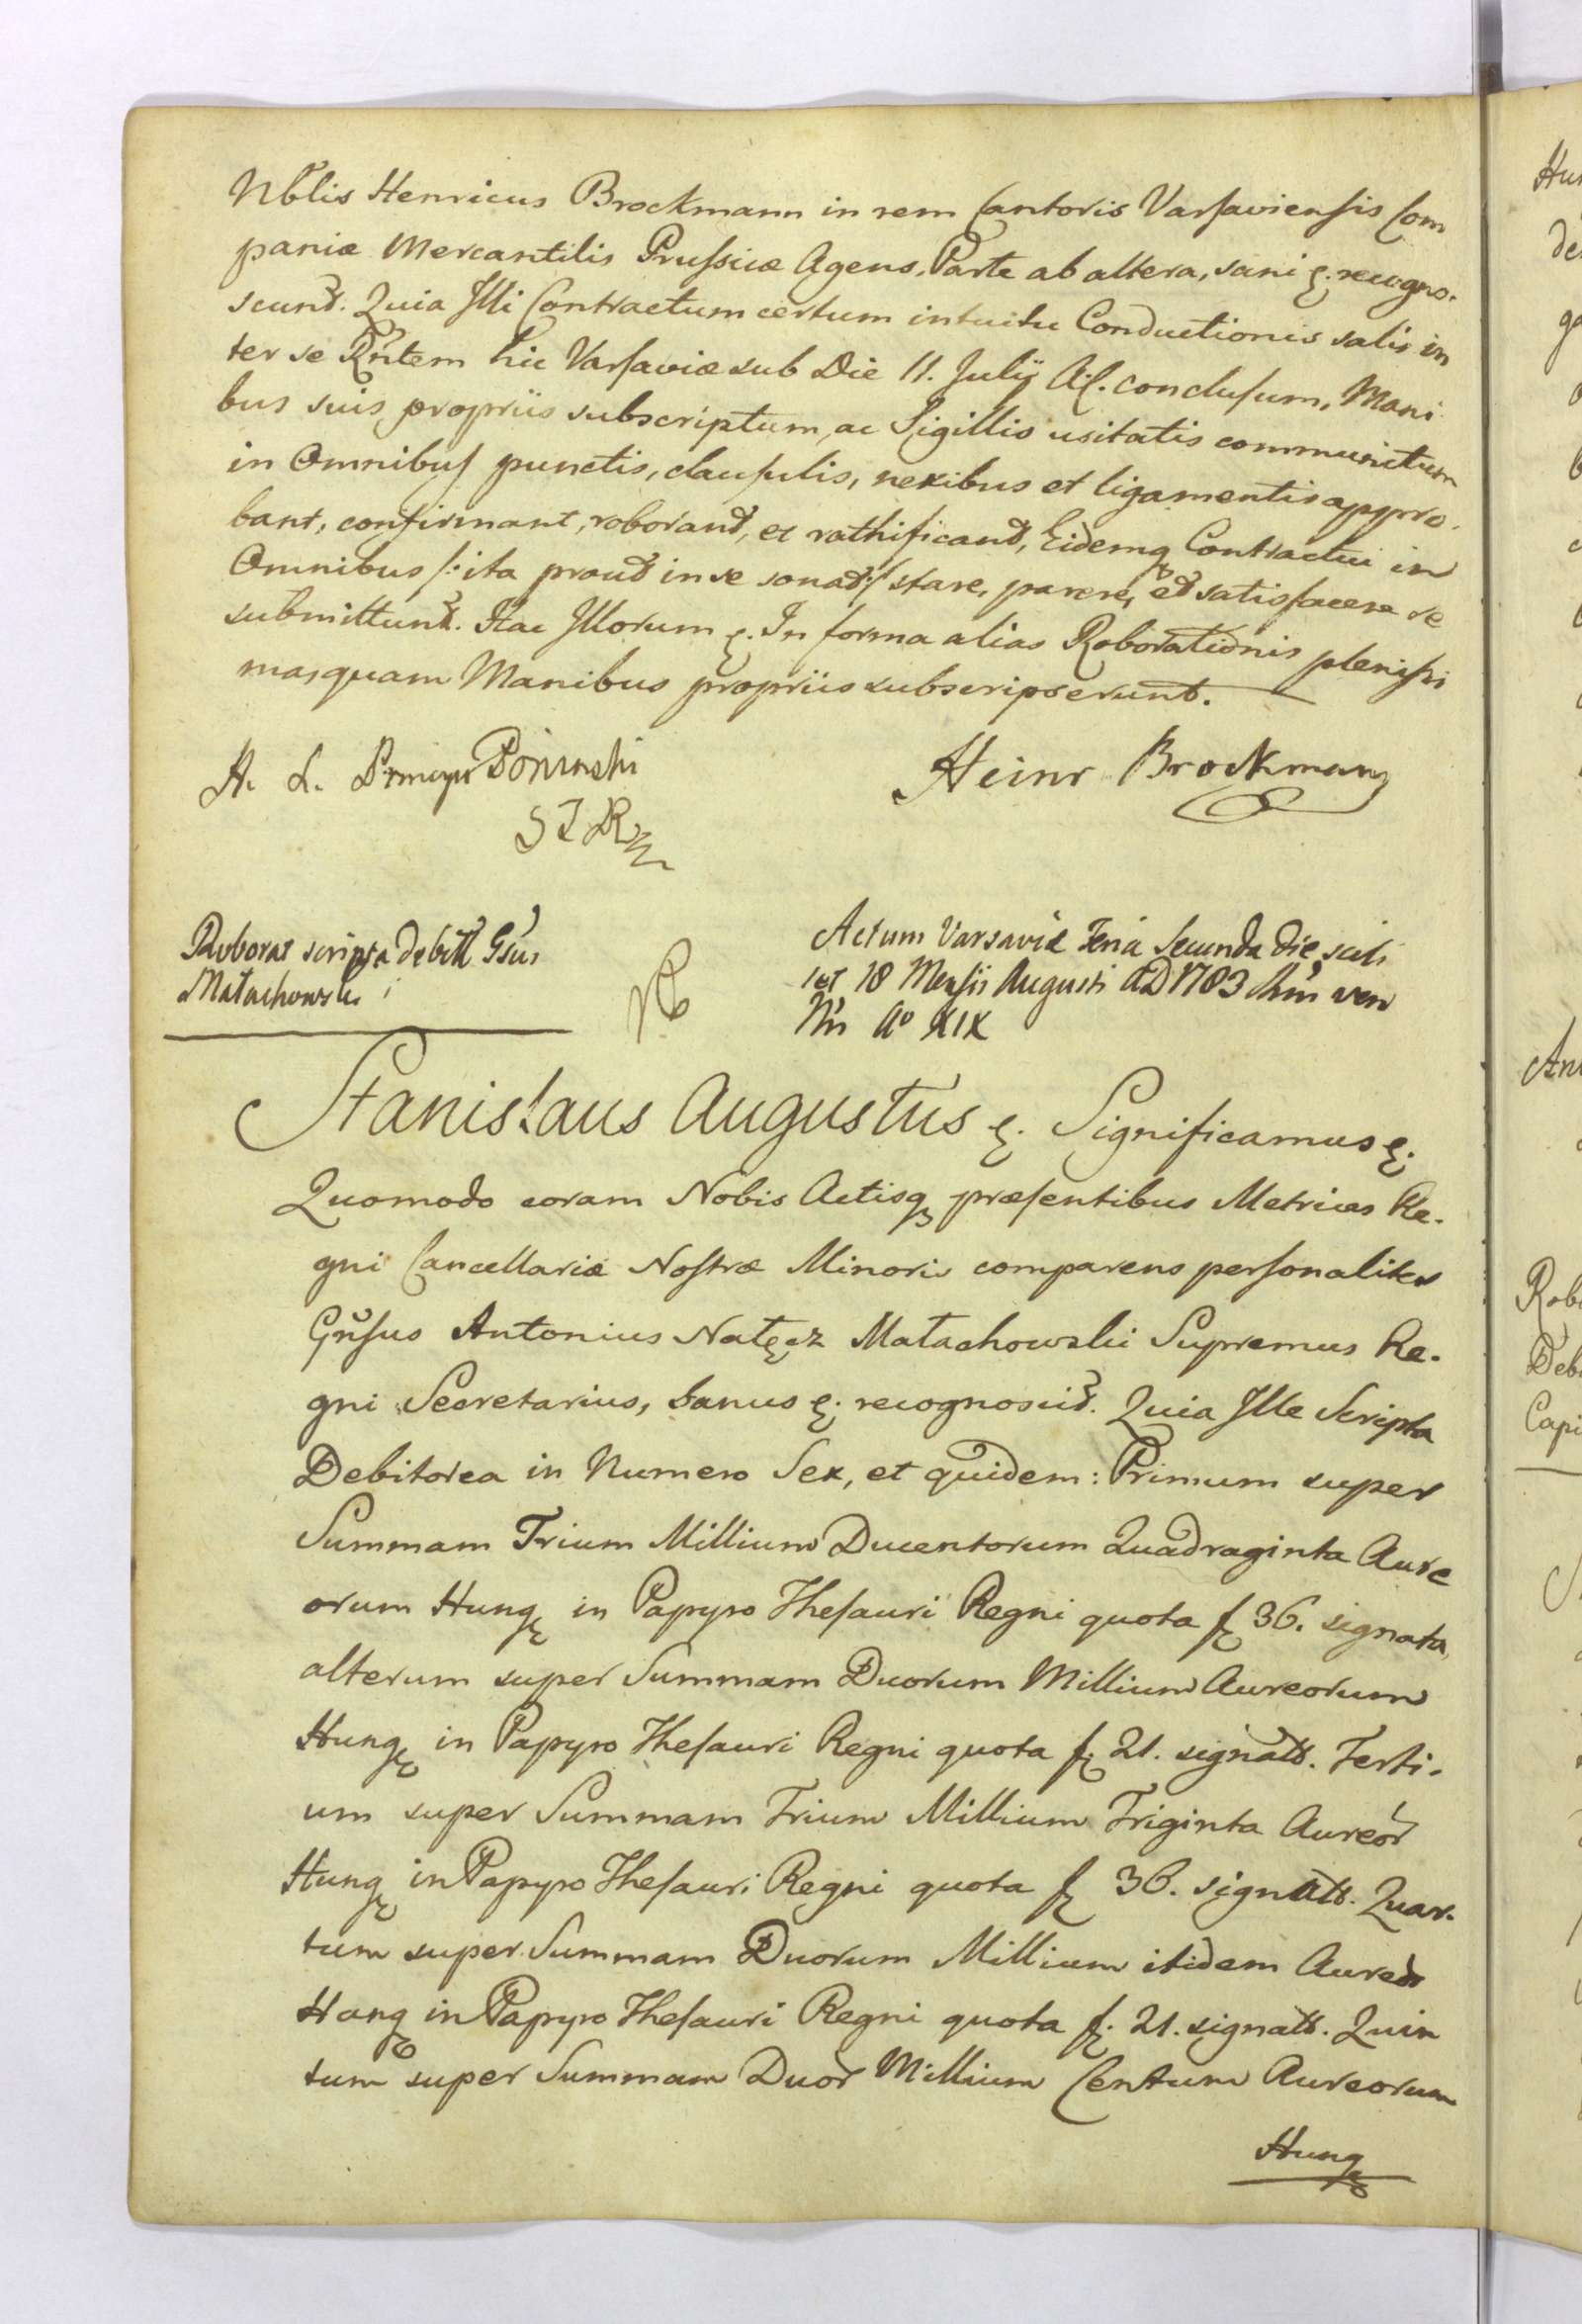 Nblis Henricus Brockmann in rem Cantoris Varsaviensis Com
paniæ Mercantilis Prussicæ Agens, Parte ab altera, sani &. recogno-
scunt. Quia Illi Contractum certum intuitu Conductionis salis in
ter se Rntem hic Varsaviæ sub Die 11. Julij A.C. conclusum, Mani
bus suis propriis subscriptum, ac Sigillis usitatis communitum
in Omnibus punctis, clausulis, nexibus et ligamentis appro-
bant, confirmant, roborant, et rathificant, Eidemq Contractui in
Omnibus /: ita prout in se sonat :/ stare, parere, et satisfacere se
submittunt. Hac Illorum &. In forma alias Roborationis plenissi
mas quam Manibus propriis subscripserunt.
A. L. Poninski
Heinr Brockmann
Roborat scripta debitt Gsus
Małachowski
Actum Varsaviæ Feria Secunda die scili
cet 18 Mensis Augusti AD 1783
Aº XIX
Stanislaus Augustus &. Significamus &.
Quomodo coram Nobis Actisq præsentibus Metrices Re-
gni Cancellariæ Nostræ Minoris comparens personaliter
Gnsus Antonius Nałęcz Małachowski Supremus Re-
gni Secretarius, Sanus &. recognoscit. Quia Ille Scripta
Debitorea in Numero Sex, et quidem: Primum super
Summam Trium Millium Ducentorum Quadraginta Aure
orum Hung in Papyro Thesauri Regni quota f 36. signata,
alterum super Summam Duorum Millium Aureorum
Hung in Papyro Thesauri Regni quota f. 21. signatt. Terti-
um super Summam Trium Millium Triginta Aureor
Hung in Papyro Thesauri Regni quota f 36. signatt. Quar-
tum super Summam Duorum Millium itidem Aureor
Hung in Papyro Thesauri Regni quota f. 21. signatt. Quin
tum super Summam Duor Millium Centum Aureorum
Hung